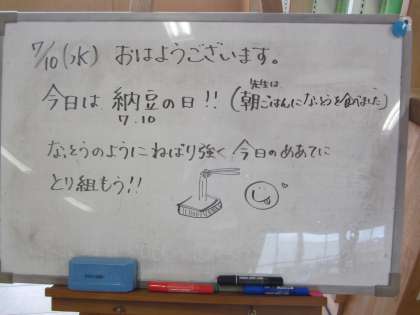 7/10(水) おはようございます。
今日は 納豆の日!!
7.10
(先生は
朝ごはんになっとうを食べました)
なっとうのようにねばり強く 今日のめあてに
とり組もう!!